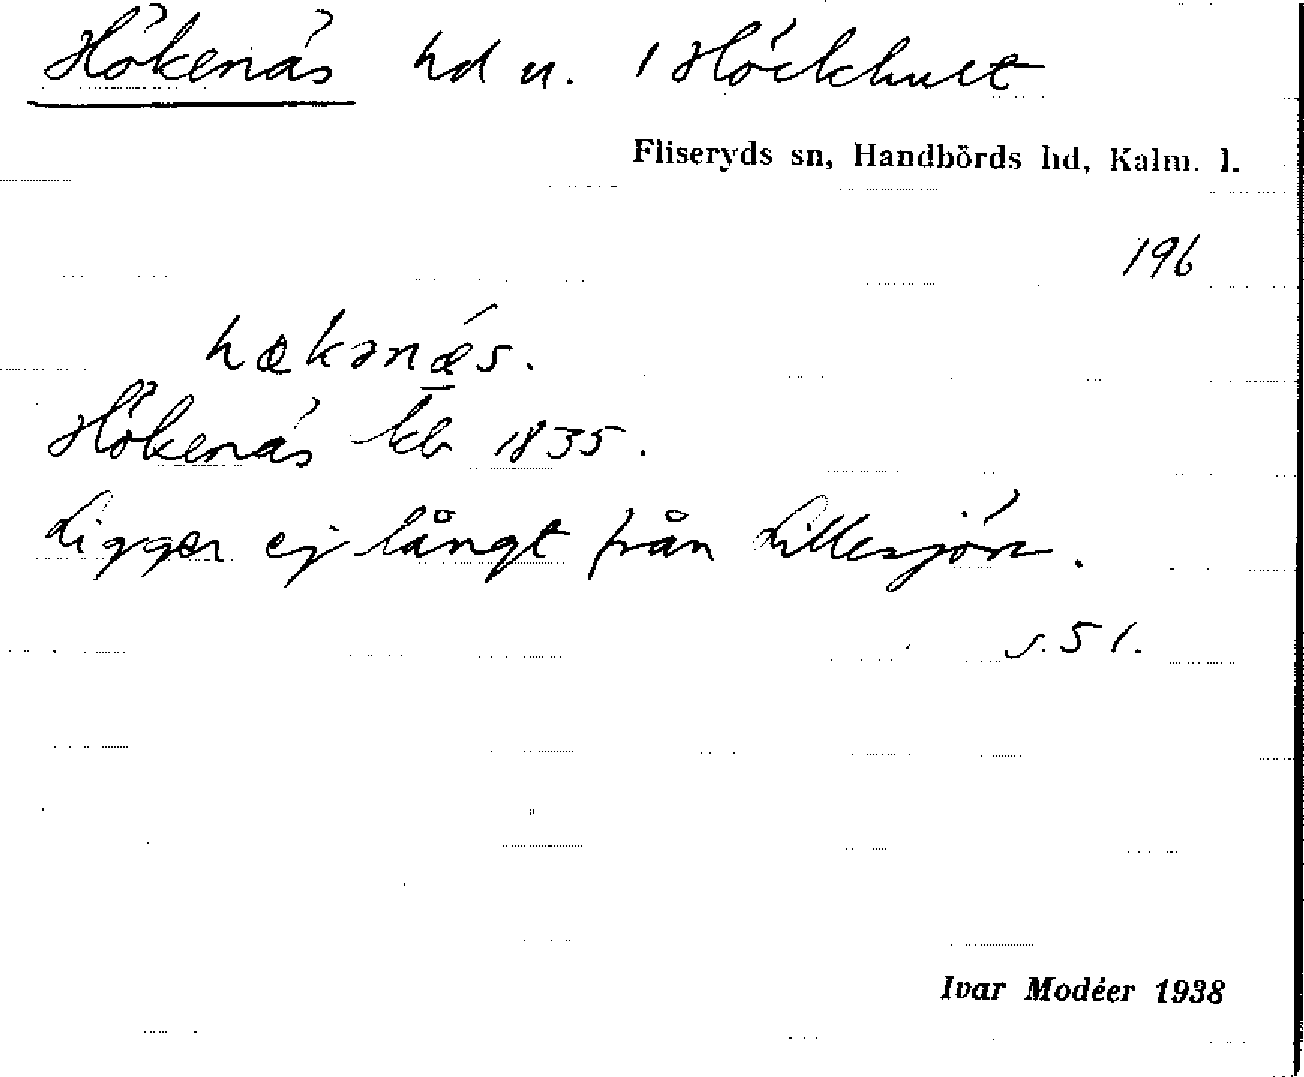 Hökenäs hd u. 1 Höckhult
Fliseryds sn, Handbörds hd, Kalm. l.
196
hœkənǽ̲s.
Hökenäs kb 1835.
Ligger ej långt från Lillesjön.
s. 51.
Ivar Modéer 1938